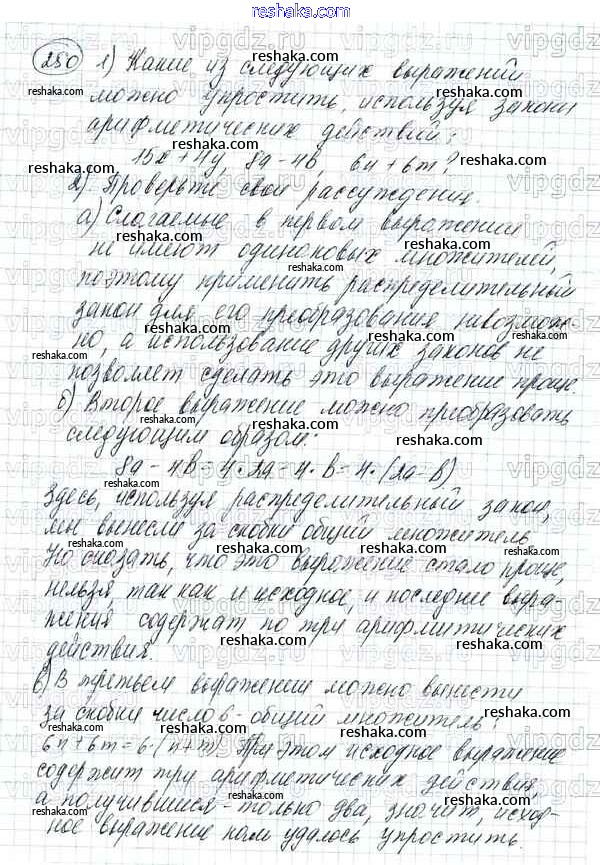 reshaka.com
280 1) Какие из следующих выражений
можно упростить, используя законы
арифметических действий:
15x + 4y, 8a - 4b, 6n + 6m?
2) Проверьте свои рассуждения.
а) Слагаемые в первом выражении
не имеют одинаковых множителей,
поэтому применить распределительный
закон для его преобразования невозмож-
но, а использование других законов не
позволяет сделать это выражение проще.
б) Второе выражение можно преобразовать
следующим образом:
8a - 4b = 4 · 2a = 4 · b = 4 · (2a - b)
Здесь, используя распределительный закон,
мы вынесли за скобки общий множитель
Но сказать, что это выражение стало проще,
нельзя, так как и исходное, и последнее выра-
жения содержат по три арифмитических
действия.
в) В третьем выражении можно вынести
за скобки число 6 - общий множитель:
6n + 6m = 6 · (n + m). При этом исходное выражение
содержит три арифметических действия,
а получившиеся - только два, значит, исход-
ное выражение нам удалось упростить.